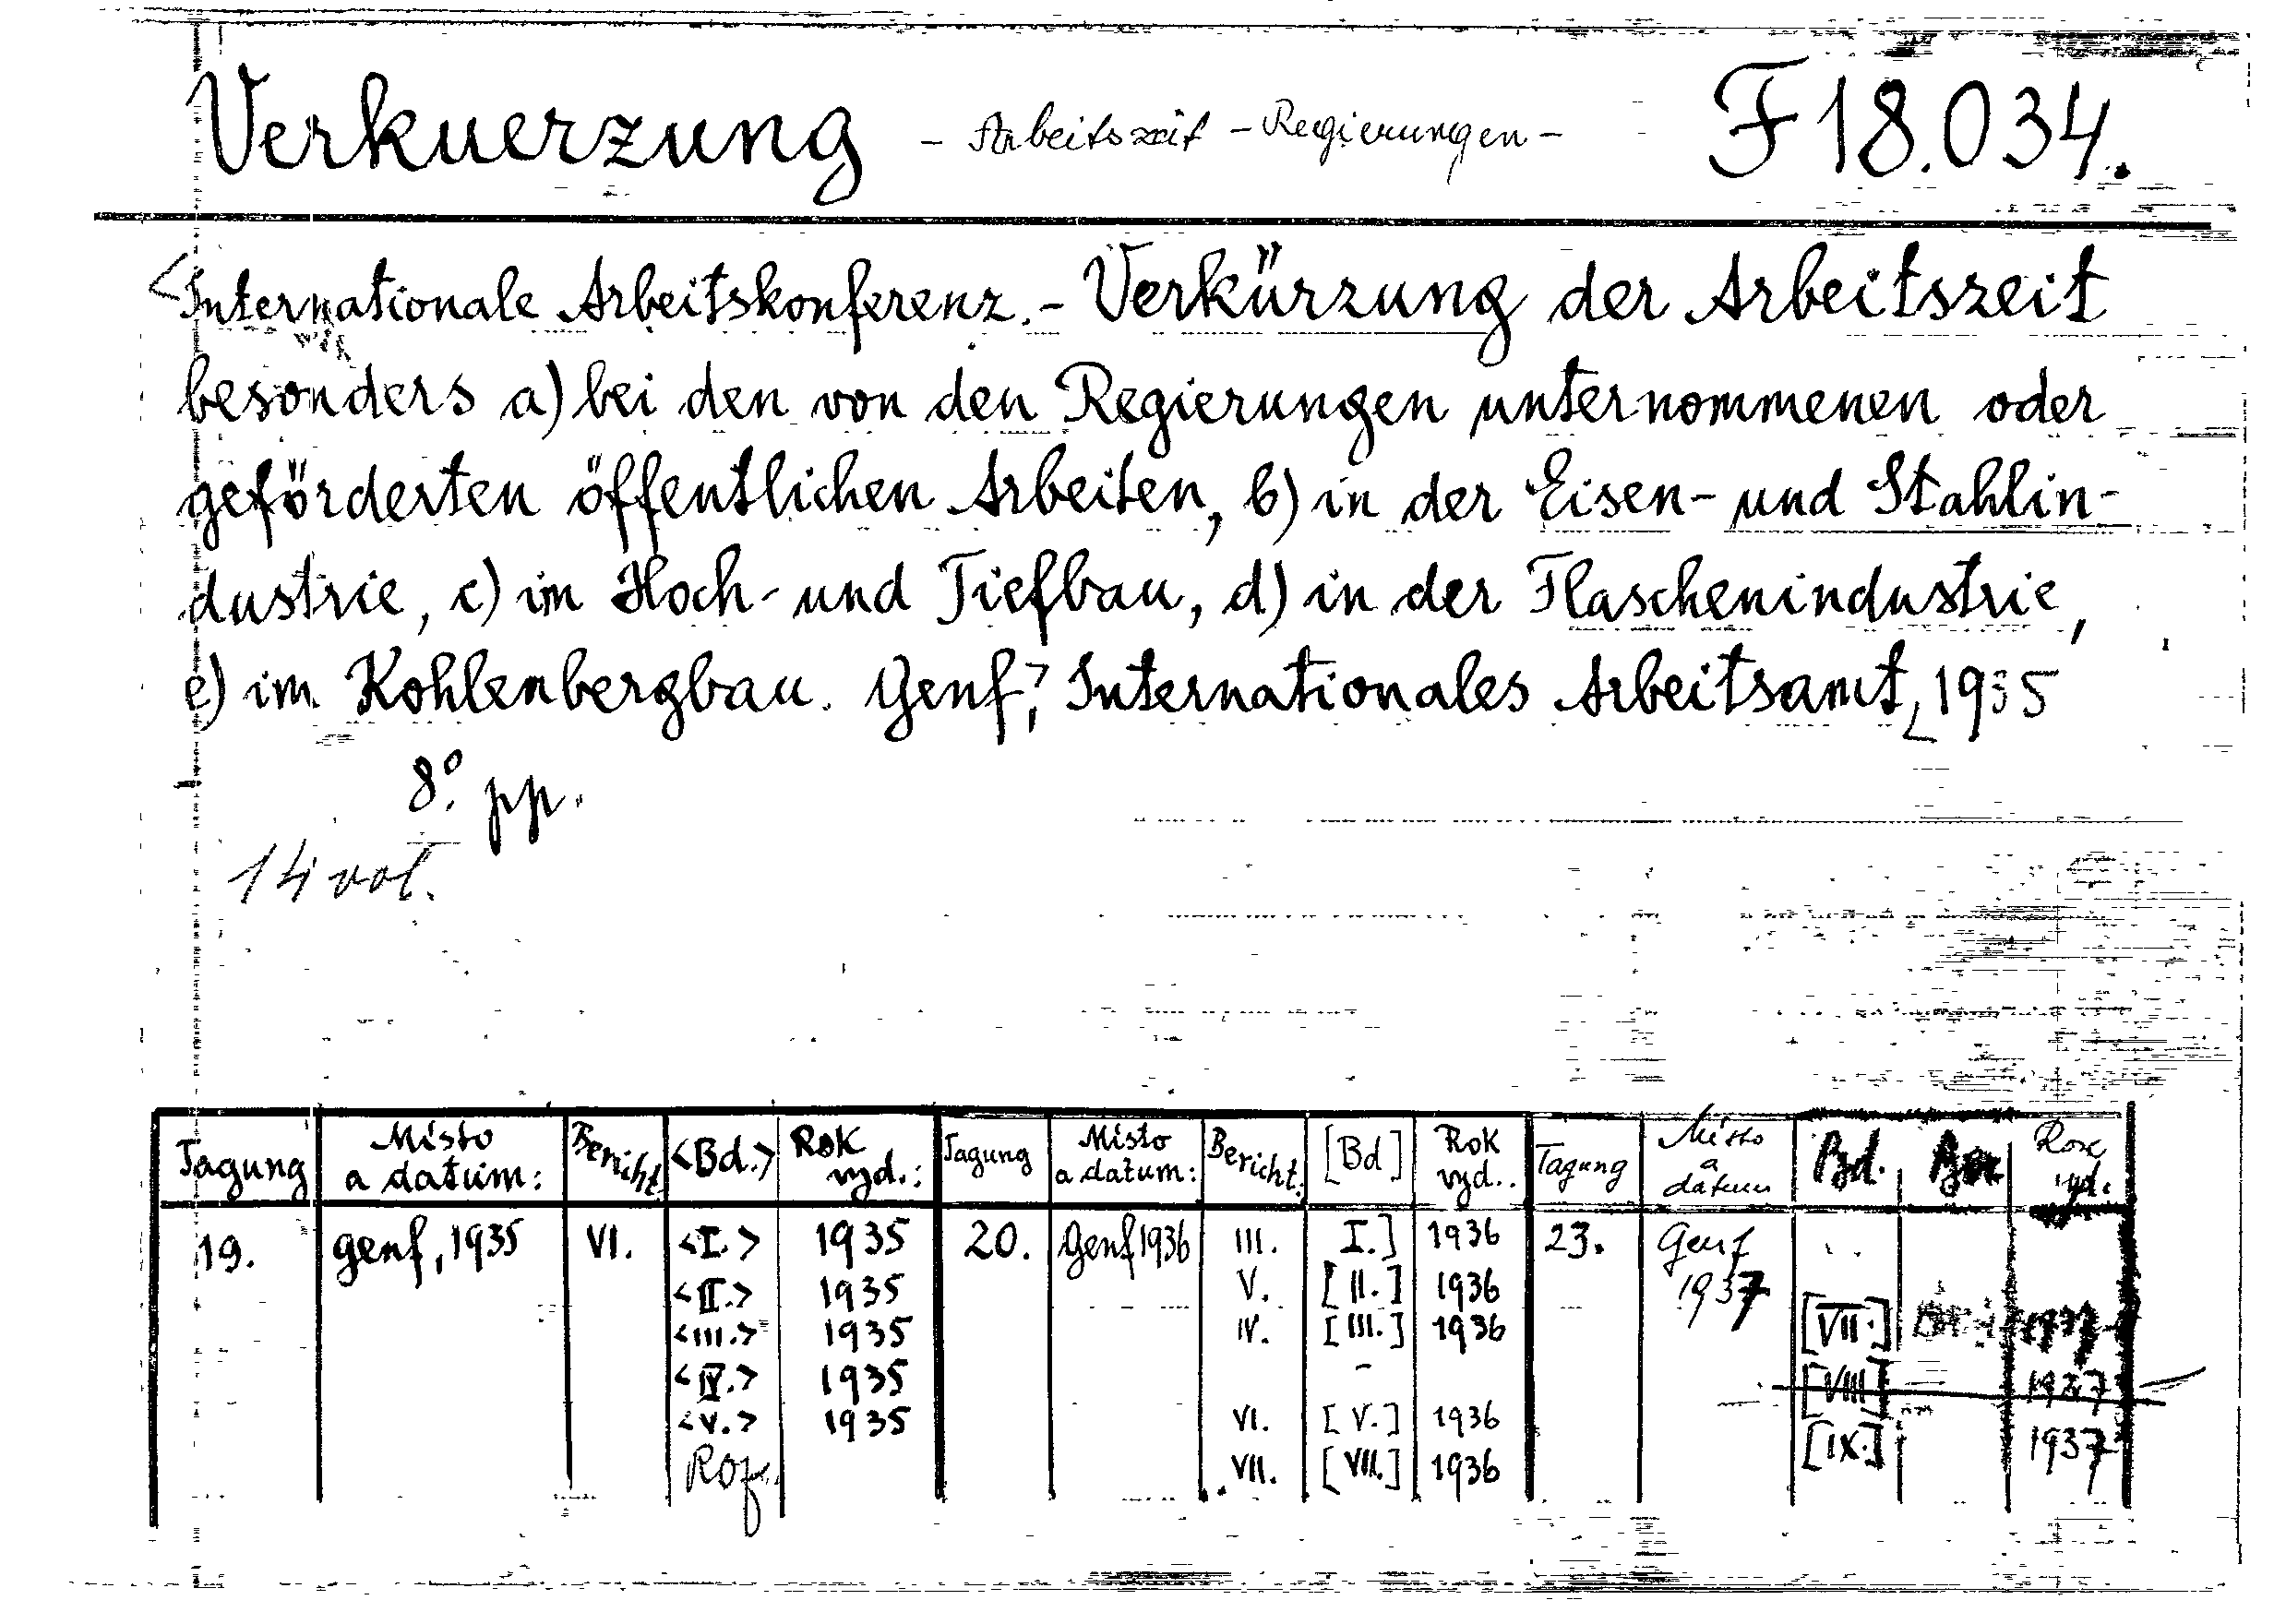 Verkuerzung - Arbeitszeit - Regierungen - F 18.034.
<Internationale Arbeitskonferenz. - Verkürzung der Arbeitszeit
besonders a) bei den von den Regierungen unternommenen oder
geförderten öffentlichen Arbeiten, b) in der Eisen- und Stahlin-
dustrie, c) im Hoch- und Tiefbau, d) in der Flaschenindustrie,
e) im Kohlenbergbau. Genf,> Internationales Arbeitsamt, 1935
8°. pp.
14 vol.
Tagung Místo a datum: Bericht. <Bd.> Rok vyd.: Tagung Místo a datum: Bericht. [Bd] Rok vyd.. Tagung Místo a datum Bd. Rok vyd.
19. Genf, 1935 VI. <I.> 1935 20. Genf 1936 III. I.] 1936 23. Genf 1937
<II.> 1935 V. [II.] 1936
<III.> 1935 IV. [III.] 1936 [VII.] 1937
<IV.> 1935 - [VIII] 1937
<V.> 1935 VI. [V.] 1936 [IX.] 1937
VII. [VII.] 1936